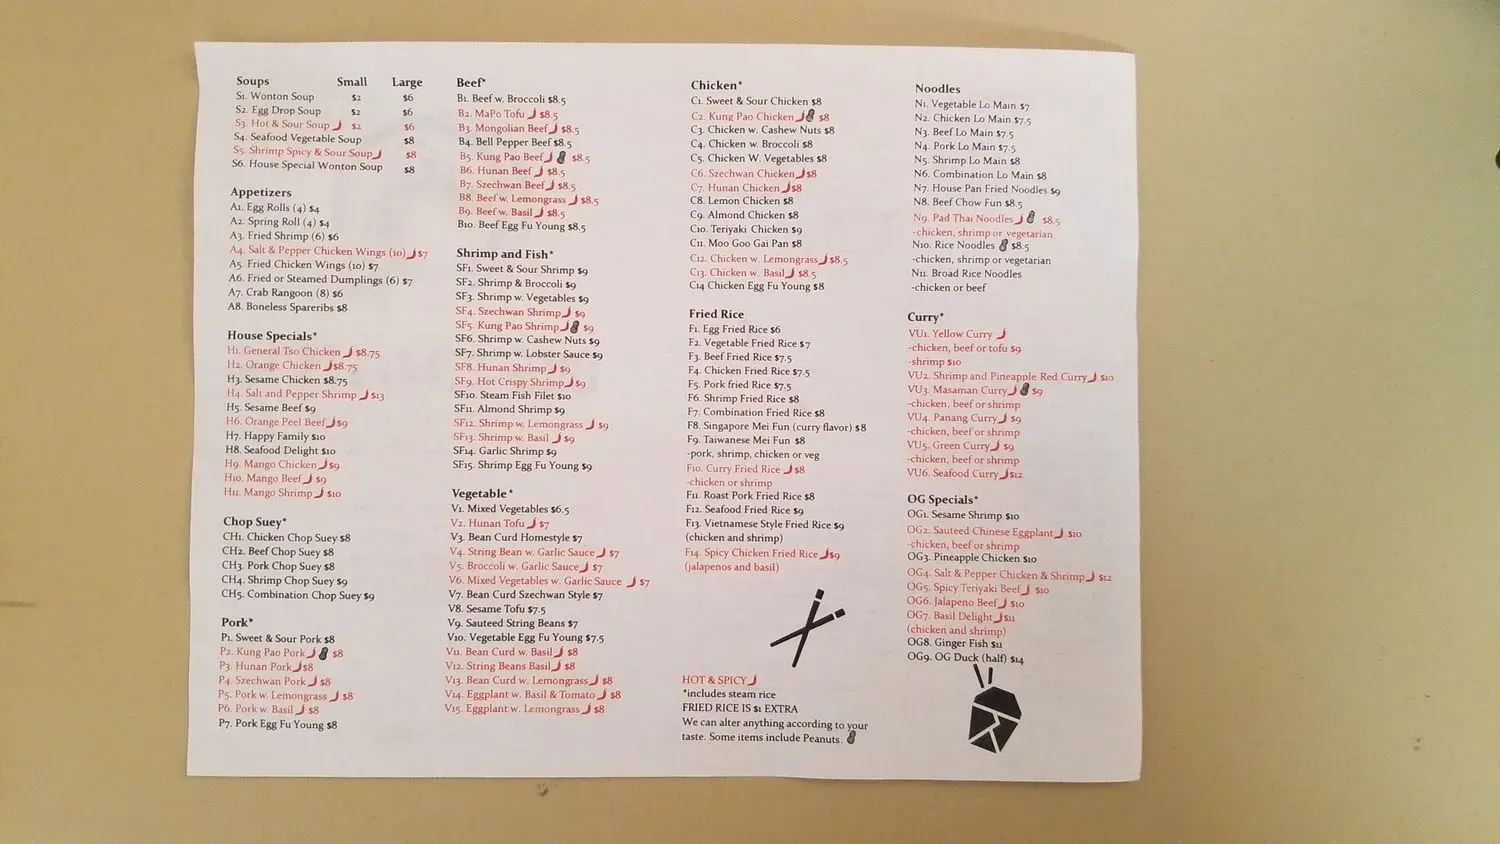 Soups Small Large
S1. Wonton Soup $2 $6
S2. Egg Drop Soup $2 $6
S3. Hot & Sour Soup $2 $6
S4. Seafood Vegetable Soup $8
S5. Shrimp Spicy & Sour Soup $8
S6. House Special Wonton Soup $8
Appetizers
A1. Egg Rolls (4) $4
A2. Spring Roll (4) $4
A3. Fried Shrimp (6) $6
A4. Salt & Pepper Chicken Wings (10) $7
A5. Fried Chicken Wings (10) $7
A6. Fried or Steamed Dumplings (6) $7
A7. Crab Rangoon (8) $6
A8. Boneless Spareribs $8
House Specials*
H1. General Tso Chicken $8.75
H2. Orange Chicken $8.75
H3. Sesame Chicken $8.75
H4. Salt and Pepper Shrimp $13
H5. Sesame Beef $9
H6. Orange Peel Beef $9
H7. Happy Family $10
H8. Seafood Delight $10
H9. Mango Chicken $9
H10. Mango Beef $9
H11. Mango Shrimp $10
Chop Suey*
CH1. Chicken Chop Suey $8
CH2. Beef Chop Suey $8
CH3. Pork Chop Suey $8
CH4. Shrimp Chop Suey $9
CH5. Combination Chop Suey $9
Pork*
P1. Sweet & Sour Pork $8
P2. Kung Pao Pork $8
P3. Hunan Pork $8
P4. Szechwan Pork $8
P5. Pork w. Lemongrass $8
P6. Pork w. Basil $8
P7. Pork Egg Fu Young $8
Beef*
B1. Beef w. Broccoli $8.5
B2. MaPo Tofu $8.5
B3. Mongolian Beef $8.5
B4. Bell Pepper Beef $8.5
B5. Kung Pao Beef $8.5
B6. Hunan Beef $8.5
B7. Szechwan Beef $8.5
B8. Beef w. Lemongrass $8.5
B9. Beef w. Basil $8.5
B10. Beef Egg Fu Young $8.5
Shrimp and Fish*
SF1. Sweet & Sour Shrimp $9
SF2. Shrimp & Broccoli $9
SF3. Shrimp w. Vegetables $9
SF4. Szechwan Shrimp $9
SF5. Kung Pao Shrimp $9
SF6. Shrimp w. Cashew Nuts $9
SF7. Shrimp w. Lobster Sauce $9
SF8. Hunan Shrimp $9
SF9. Hot Crispy Shrimp $9
SF10. Steam Fish Filet $10
SF11. Almond Shrimp $9
SF12. Shrimp w. Lemongrass $9
SF13. Shrimp w. Basil $9
SF14. Garlic Shrimp $9
SF15. Shrimp Egg Fu Young $9
Vegetable *
V1. Mixed Vegetables $6.5
V2. Hunan Tofu $7
V3. Bean Curd Homestyle $7
V4. String Bean w. Garlic Sauce $7
V5. Broccoli w. Garlic Sauce $7
V6. Mixed Vegetables w. Garlic Sauce $7
V7. Bean Curd Szechwan Style $7
V8. Sesame Tofu $7.5
V9. Sauteed String Beans $7
V10. Vegetable Egg Fu Young $7.5
V11. Bean Curd w. Basil $8
V12. String Beans Basil $8
V13. Bean Curd w. Lemongrass $8
V14. Eggplant w. Basil & Tomato $8
V15. Eggplant w. Lemongrass $8
Chicken*
C1. Sweet & Sour Chicken $8
C2. Kung Pao Chicken $8
C3. Chicken w. Cashew Nuts $8
C4. Chicken w. Broccoli $8
C5. Chicken W. Vegetables $8
C6. Szechwan Chicken $8
C7. Hunan Chicken $8
C8. Lemon Chicken $8
C9. Almond Chicken $8
C10. Teriyaki Chicken $9
C11. Moo Goo Gai Pan $8
C12. Chicken w. Lemongrass $8.5
C13. Chicken w. Basil $8.5
C14 Chicken Egg Fu Young $8
Fried Rice
F1. Egg Fried Rice $6
F2. Vegetable Fried Rice $7
F3. Beef Fried Rice $7.5
F4. Chicken Fried Rice $7.5
F5. Pork fried Rice $7.5
F6. Shrimp Fried Rice $8
F7. Combination Fried Rice $8
F8. Singapore Mei Fun (curry flavor) $8
F9. Taiwanese Mei Fun $8
-pork, shrimp, chicken or veg
F10. Curry Fried Rice $8
-chicken or shrimp
F11. Roast Pork Fried Rice $8
F12. Seafood Fried Rice $9
F13. Vietnamese Style Fried Rice $9
(chicken and shrimp)
F14. Spicy Chicken Fried Rice $9
(jalapenos and basil)
HOT & SPICY
*includes steam rice
FRIED RICE IS $1 EXTRA
We can alter anything according to your
taste. Some items include Peanuts.
Noodles
N1. Vegetable Lo Main $7
N2. Chicken Lo Main $7.5
N3. Beef Lo Main $7.5
N4. Pork Lo Main $7.5
N5. Shrimp Lo Main $8
N6. Combination Lo Main $8
N7. House Pan Fried Noodles $9
N8. Beef Chow Fun $8.5
N9. Pad Thai Noodles $8.5
-chicken, shrimp or vegetarian
N10. Rice Noodles $8.5
-chicken, shrimp or vegetarian
N11. Broad Rice Noodles
-chicken or beef
Curry*
VU1. Yellow Curry
-chicken, beef or tofu $9
-shrimp $10
VU2. Shrimp and Pineapple Red Curry $10
VU3. Masaman Curry $9
-chicken, beef or shrimp
VU4. Panang Curry $9
-chicken, beef or shrimp
VU5. Green Curry $9
-chicken, beef or shrimp
VU6. Seafood Curry $12
OG Specials*
OG1. Sesame Shrimp $10
OG2. Sauteed Chinese Eggplant $10
-chicken, beef or shrimp
OG3. Pineapple Chicken $10
OG4. Salt & Pepper Chicken & Shrimp $12
OG5. Spicy Teriyaki Beef $10
OG6. Jalapeno Beef $10
OG7. Basil Delight $11
(chicken and shrimp)
OG8. Ginger Fish $11
OG9. OG Duck (half) $14